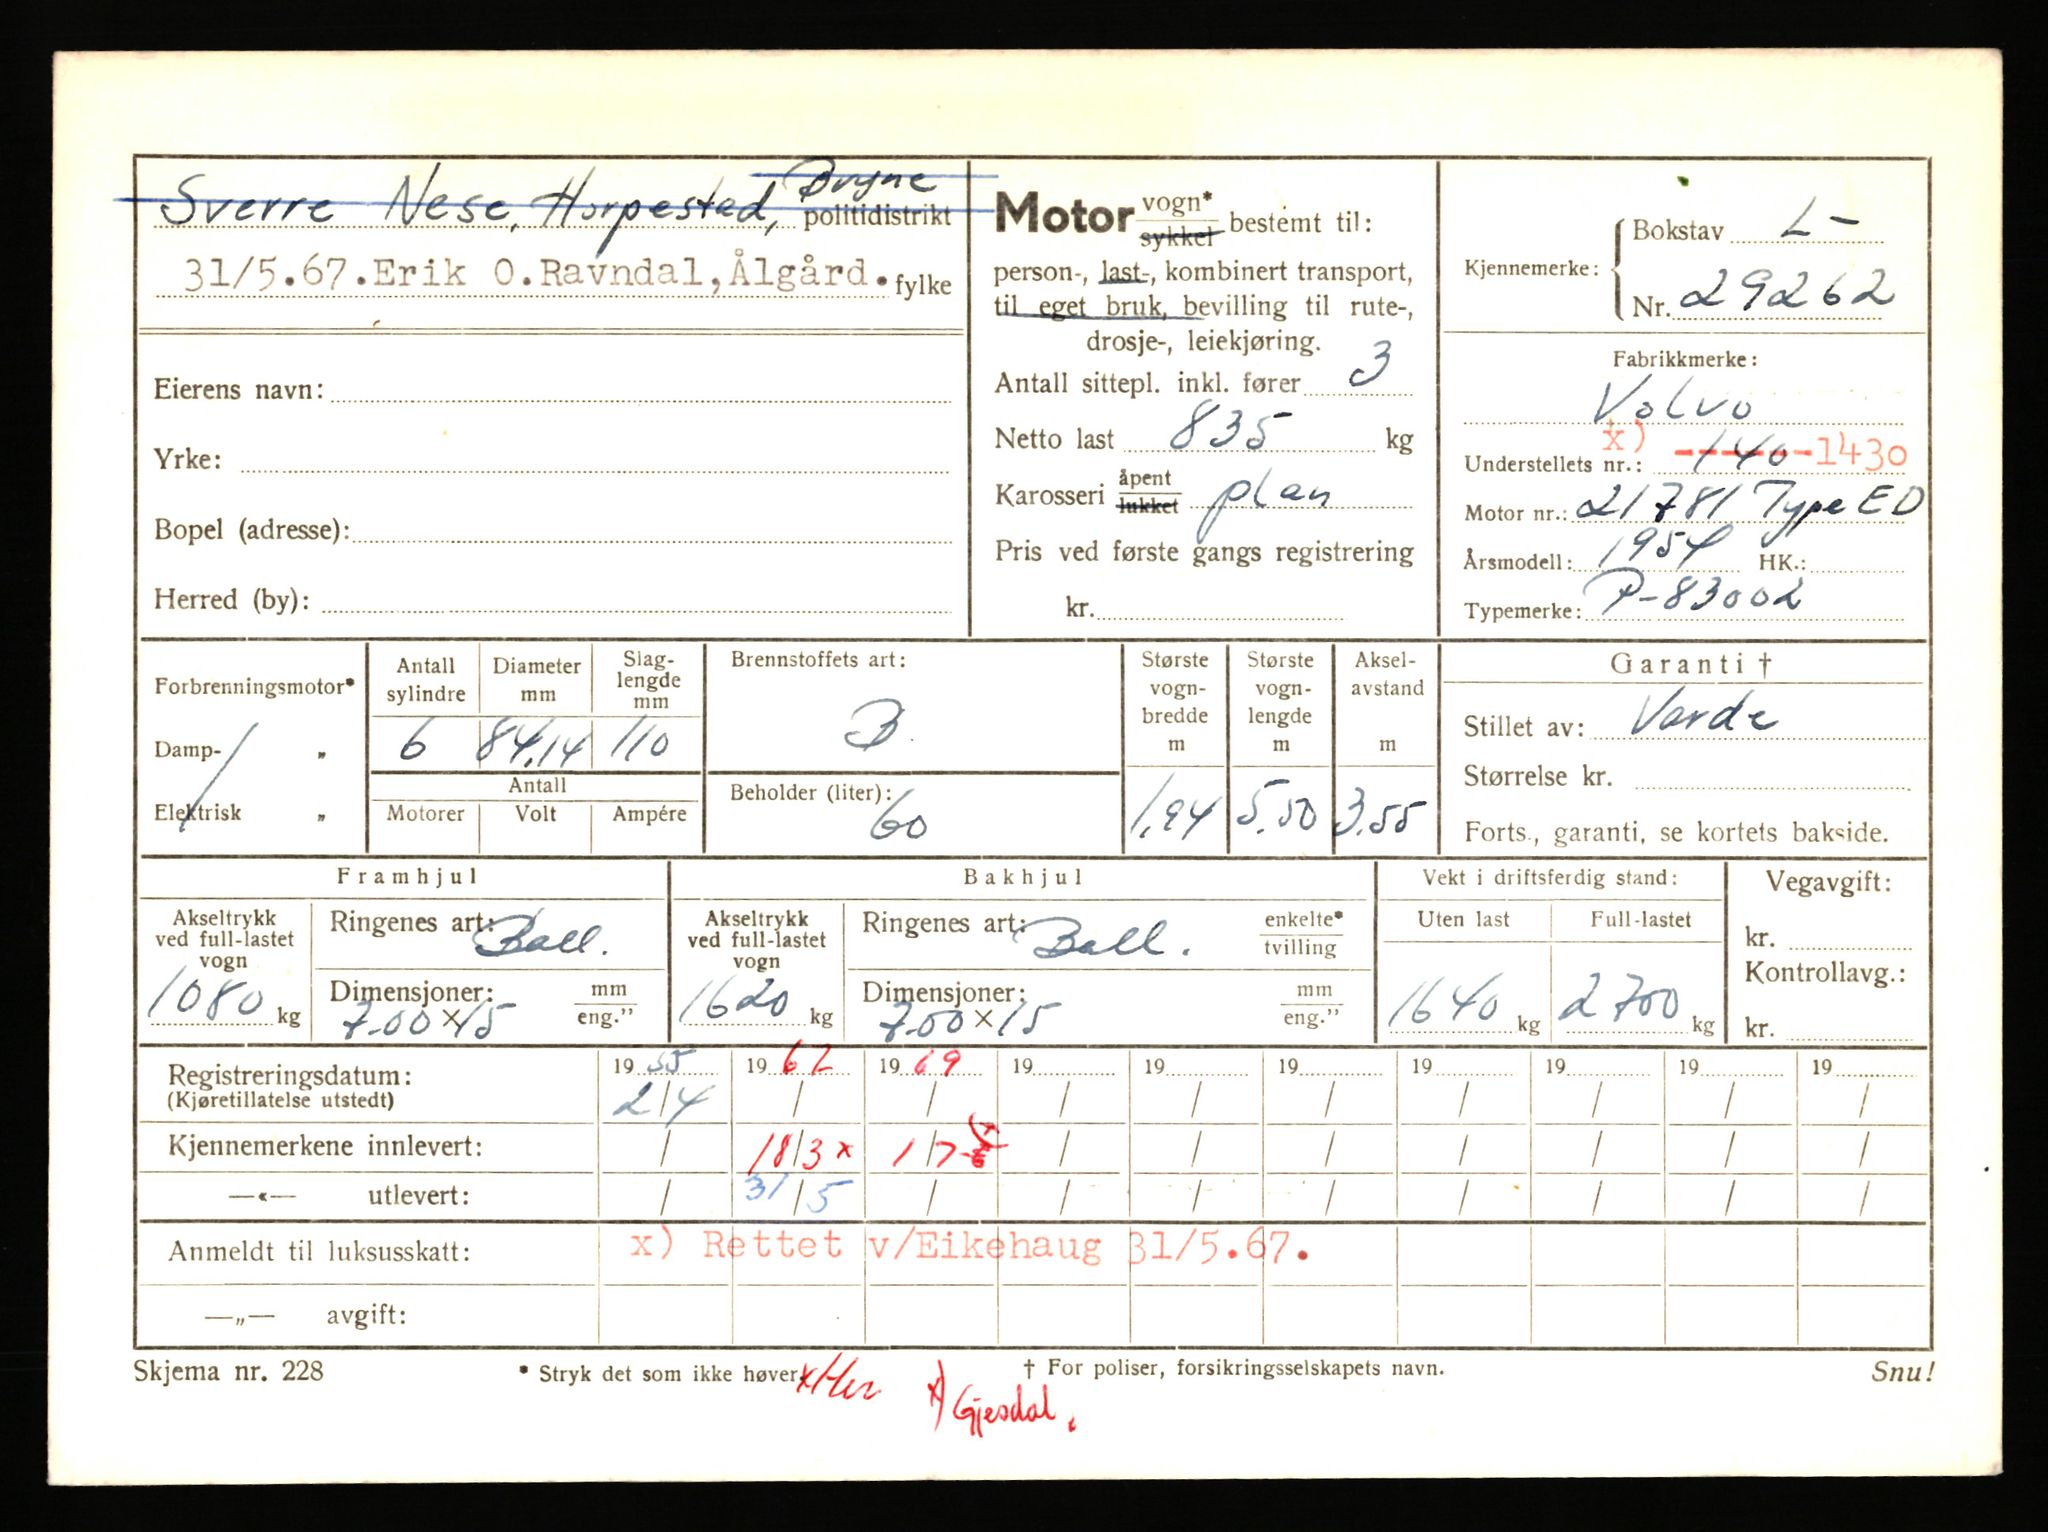 Sverre Nese, Horpestad, Bryne politidistrikt
31/5.67.Erik O.Ravndal,Ålgård. fylke
Eierens navn:
Yrke:
Bopel (adresse):
Herred (by):
Motor vogn* sykkel bestemt til:
person-, last-, kombinert transport,
til eget bruk, bevilling til rute-,
drosje-, leiekjøring.
Antall sittepl. inkl. fører 3
Netto last 835 kg
Karosseri åpent lukket plan
Pris ved første gangs registrering
kr.
Kjennemerke: Bokstav L-
Nr. 29262
Fabrikkmerke:
Volvo
x)
Understellets nr.: 140-1430
Motor nr.: 21781 Type ED
Årsmodell: 1954 HK.:
Typemerke: P-83002
Forbrenningsmotor*
Damp- „
Elektrisk „
Antall sylindre
Diameter mm
Slag-lengde mm
6 84,14 110
Antall
Motorer Volt Ampére
Brennstoffets art:
B
Beholder (liter):
60
Største vogn-bredde m
1,94
Største vogn-lengde m
5.50
Aksel-avstand m
3.55
Garanti †
Stillet av: Varde
Størrelse kr.
Forts., garanti, se kortets bakside.
Framhjul
Akseltrykk
ved full-lastet
vogn
1080 kg
Ringenes art: Ball.
Dimensjoner: mm eng.”
7.00 x 15
Bakhjul
Akseltrykk
ved full-lastet
vogn
1620 kg
Ringenes art: Ball. enkelte* tvilling
Dimensjoner: mm eng.”
7.00 x 15
Vekt i driftsferdig stand:
Uten last Full-lastet
1640 kg 2700 kg
Vegavgift:
kr.
Kontrollavg.:
kr.
Registreringsdatum: 19 55 19 62 19 69 19 19 19 19 19 19 19
(Kjøretillatelse utstedt) 2/4 / / / / / / / / /
Kjennemerkene innlevert: / 18/3 x 1/7 x) / / / / / / /
—«— utlevert: / 31/5 / / / / / / / /
Anmeldt til luksusskatt: x) Rettet v/Eikehaug 31/5.67.
—„— avgift:
Skjema nr. 228
* Stryk det som ikke høver.
† For poliser, forsikringsselskapets navn.
Snu!
x) Gjesdal.